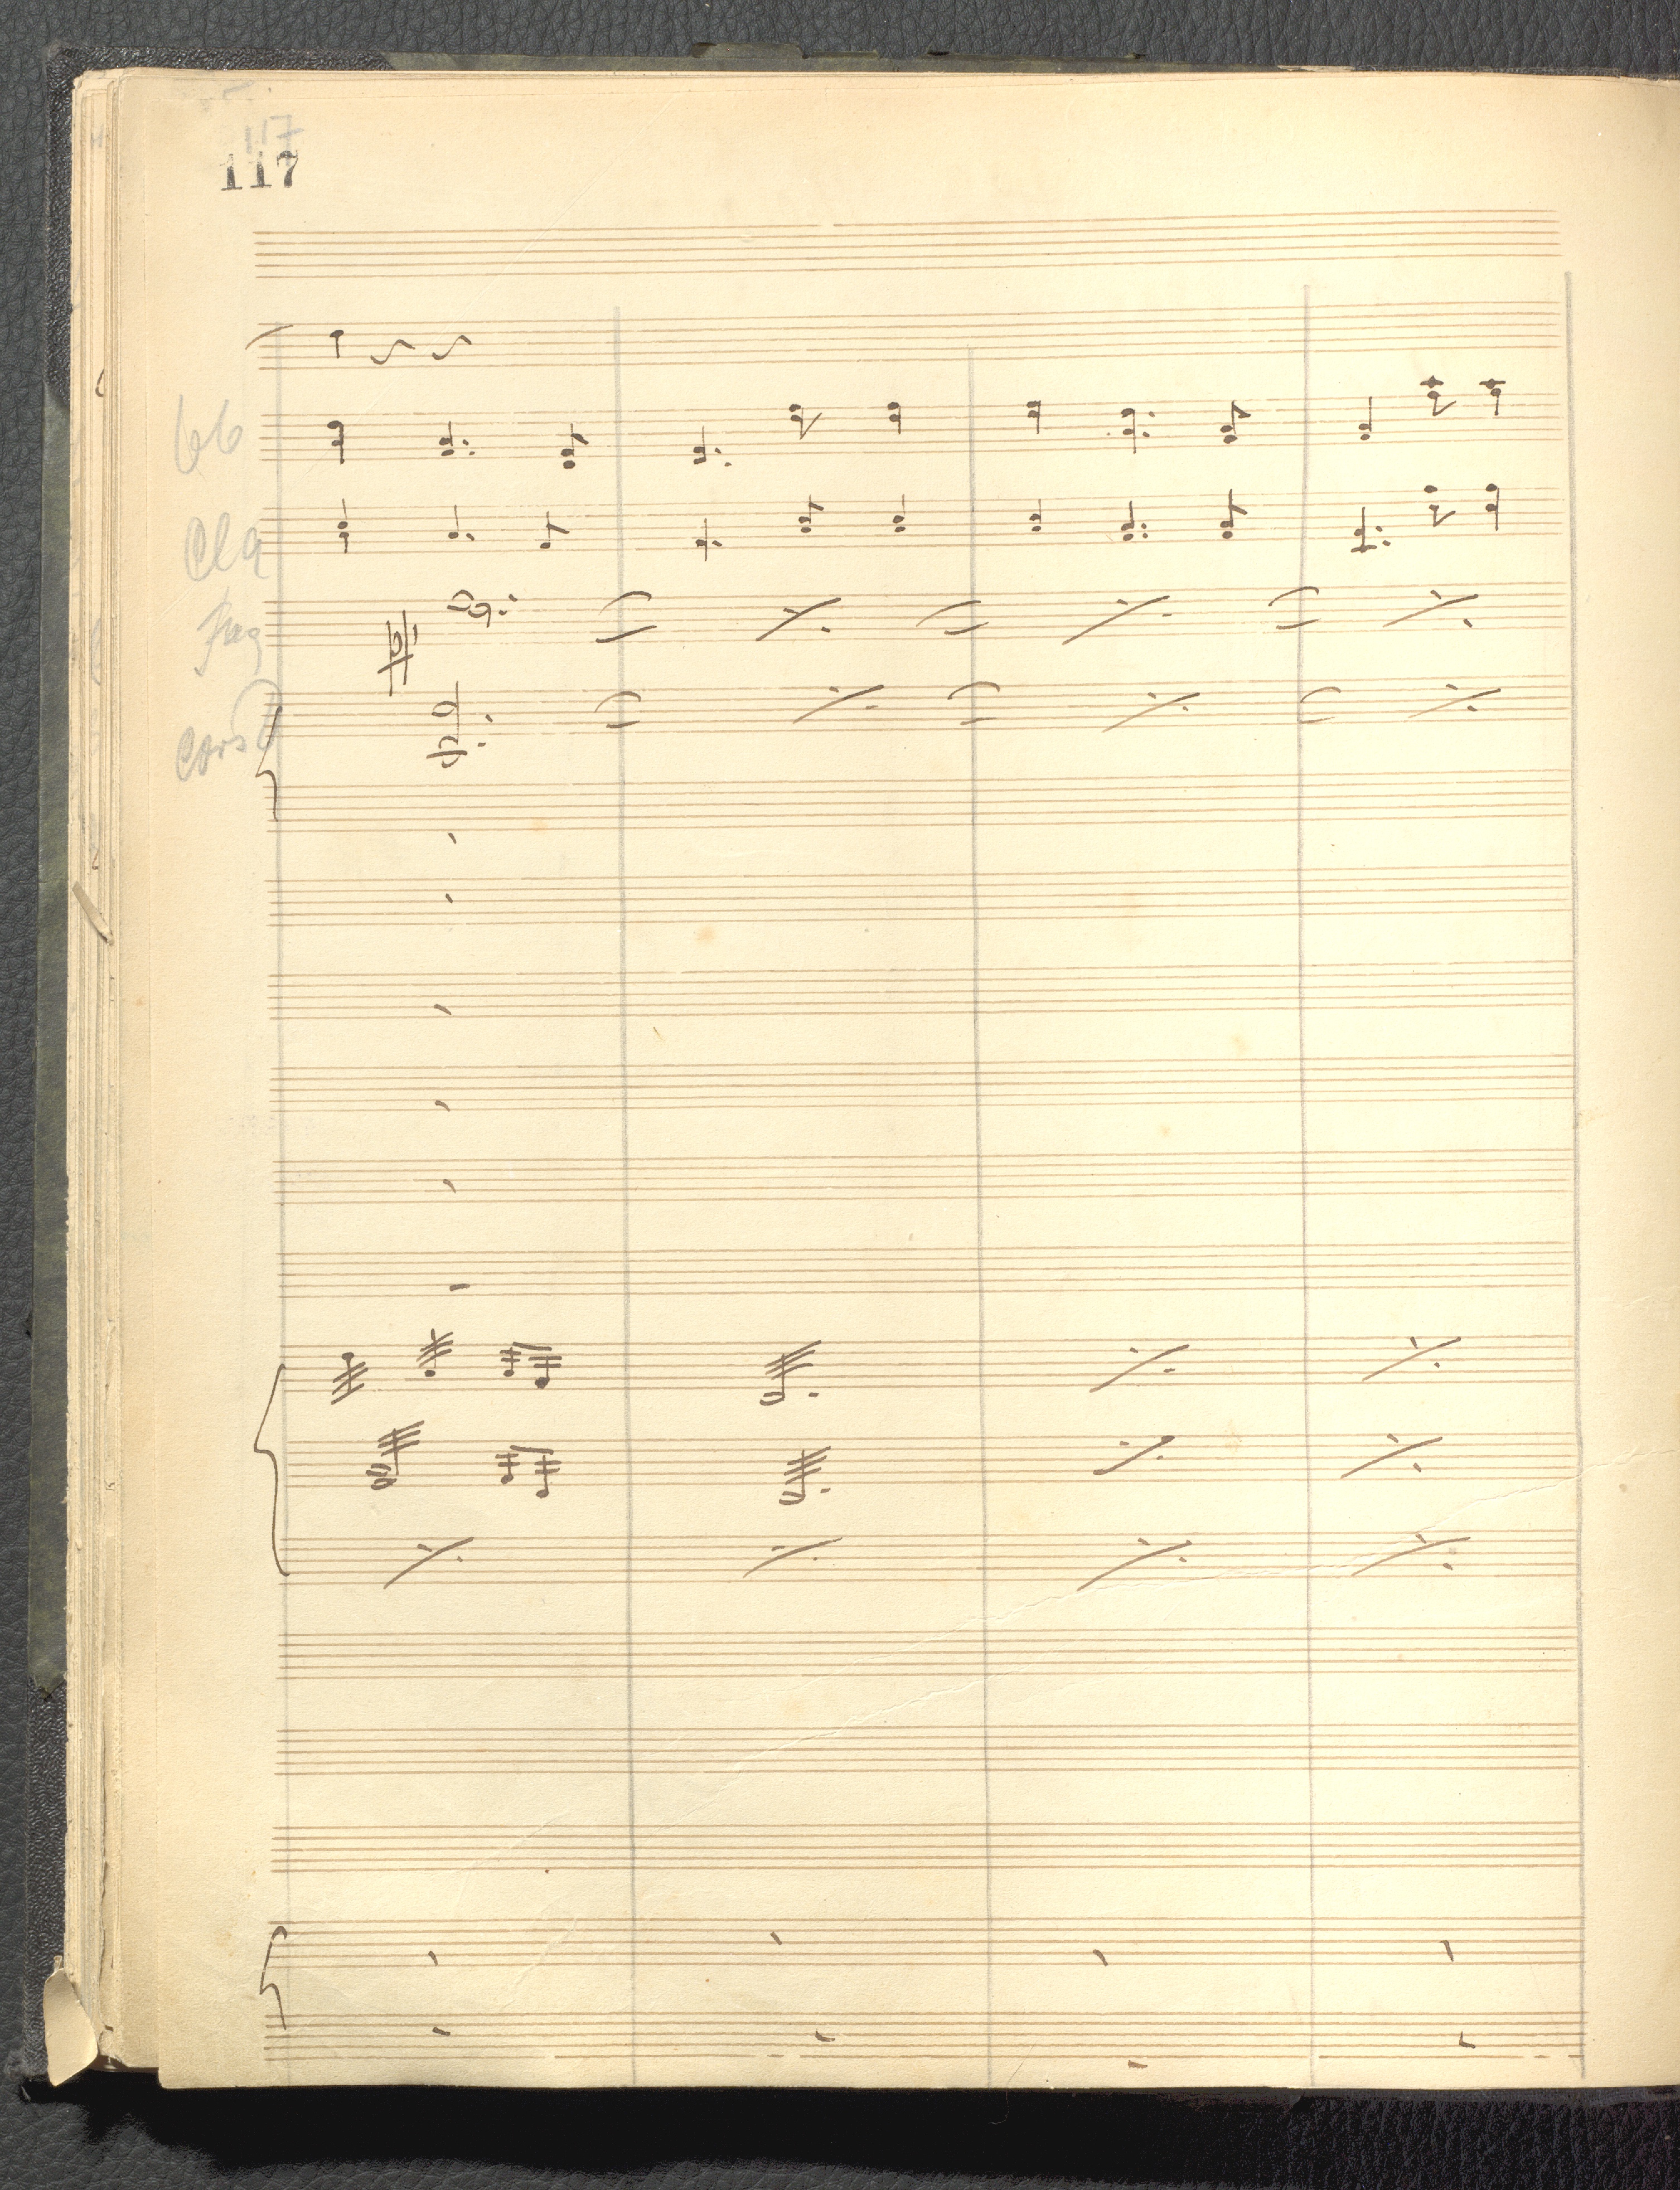 117
117
Cla
Fag
Cors